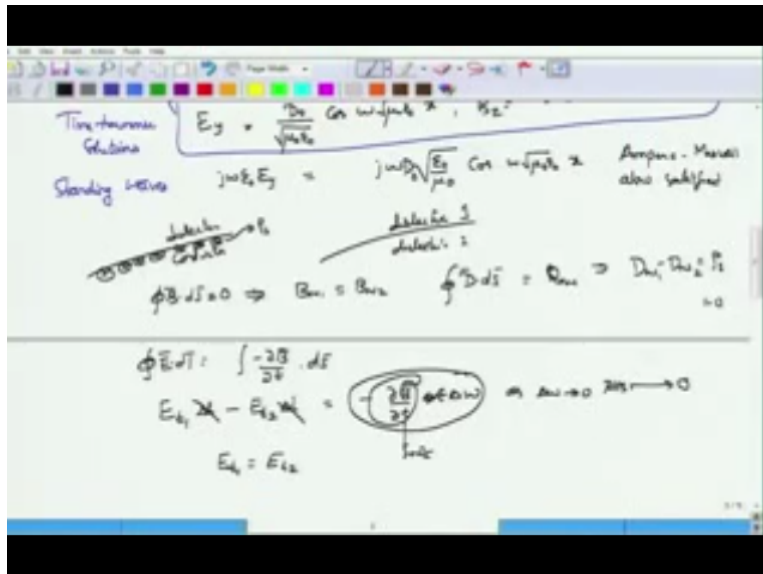 Time-harmonic Solutions
E_y = D_0/√μ_0ε_0 cos ω√μ_0ε_0 x , B_z =
Standing waves
jωε_0 E_y = jωD_0 √ε_0/μ_0 cos ω√μ_0ε_0 x
Ampere-Maxwell also satisfied
dielectric
ρ_s
conductor
dielectric 1
dielectric 2
∮B̄·ds̄=0 ⇒ B_n1 = B_n2
∮D̄·ds̄ = Q_enc ⇒ D_n1 - D_n2 = ρ_s
=0
∮Ē·dl̄ = ∫ -∂B̄/∂t · ds̄
E_t1 Δl - E_t2 Δl = - ∂B̄/∂t Δl Δw as Δw→0 RHS → 0
finite
E_t1 = E_t2